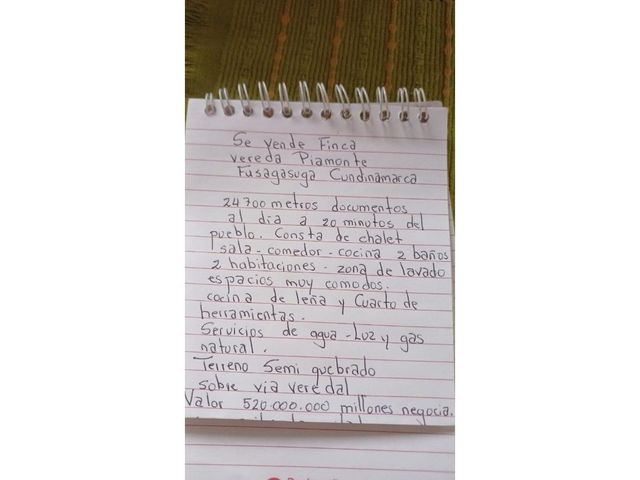 Se vende Finca
vereda Piamonte
Fusagasuga Cundinamarca
24700 metros documentos
al dia a 20 minutos del
pueblo. Consta de chalet
sala - comedor - cocina 2 baños
2 habitaciones - zona de lavado
espacios muy comodos.
cocina de leña y Cuarto de
herramientas.
Servicios de agua - Luz y gas
natural.
Terreno Semi quebrado
sobre via veredal
Valor 520.000.000 millones negocia.